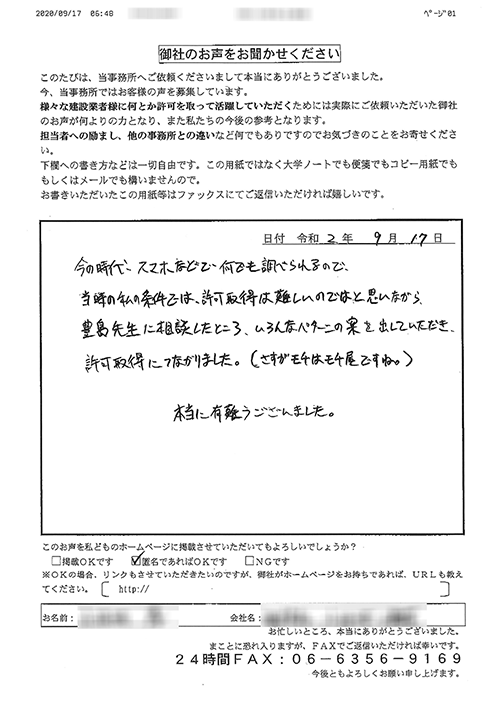 2020/09/17 06:48 ﾍﾟｰｼﾞ01
御社のお声をお聞かせください
このたびは、当事務所へご依頼くださいまして本当にありがとうございました。
今、当事務所ではお客様の声を募集しています。
様々な建設業者様に何とか許可を取って活躍していただくためには実際にご依頼いただいた御社
のお声が何よりの力となり、また私たちの今後の参考となります。
担当者への励まし、他の事務所との違いなど何でもありですのでお気づきのことをお寄せくださ
い。
下欄への書き方などは一切自由です。この用紙ではなく大学ノートでも便箋でもコピー用紙でも
もしくはメールでも構いませんので。
お書きいただいたこの用紙等はファックスにてご返信いただければ嬉しいです。
日付 令和 2 年 9 月 17 日
今の時代、スマホなどで何でも調べられるので、
当時の私の条件では、許可取得は難しいのではと思いながら、
豊島先生に相談したところ、いろんなパターンの案を出していただき、
許可取得につながりました。(さすがモチはモチ屋ですね。)
本当に有難うございました。
このお声を私どものホームページに掲載させていただいてもよろしいでしょうか?
□掲載OKです ☑匿名であればOKです □NGです
※OKの場合、リンクもさせていただきたいのですが、御社がホームページをお持ちであれば、URLも教え
てください。[ http:// ]
お名前: 会社名:
お忙しいところ、本当にありがとうございました。
まことに恐れ入りますが、FAXでご返信いただければ幸いです。
24時間FAX:06-6356-9169
今後ともよろしくお願い申し上げます。